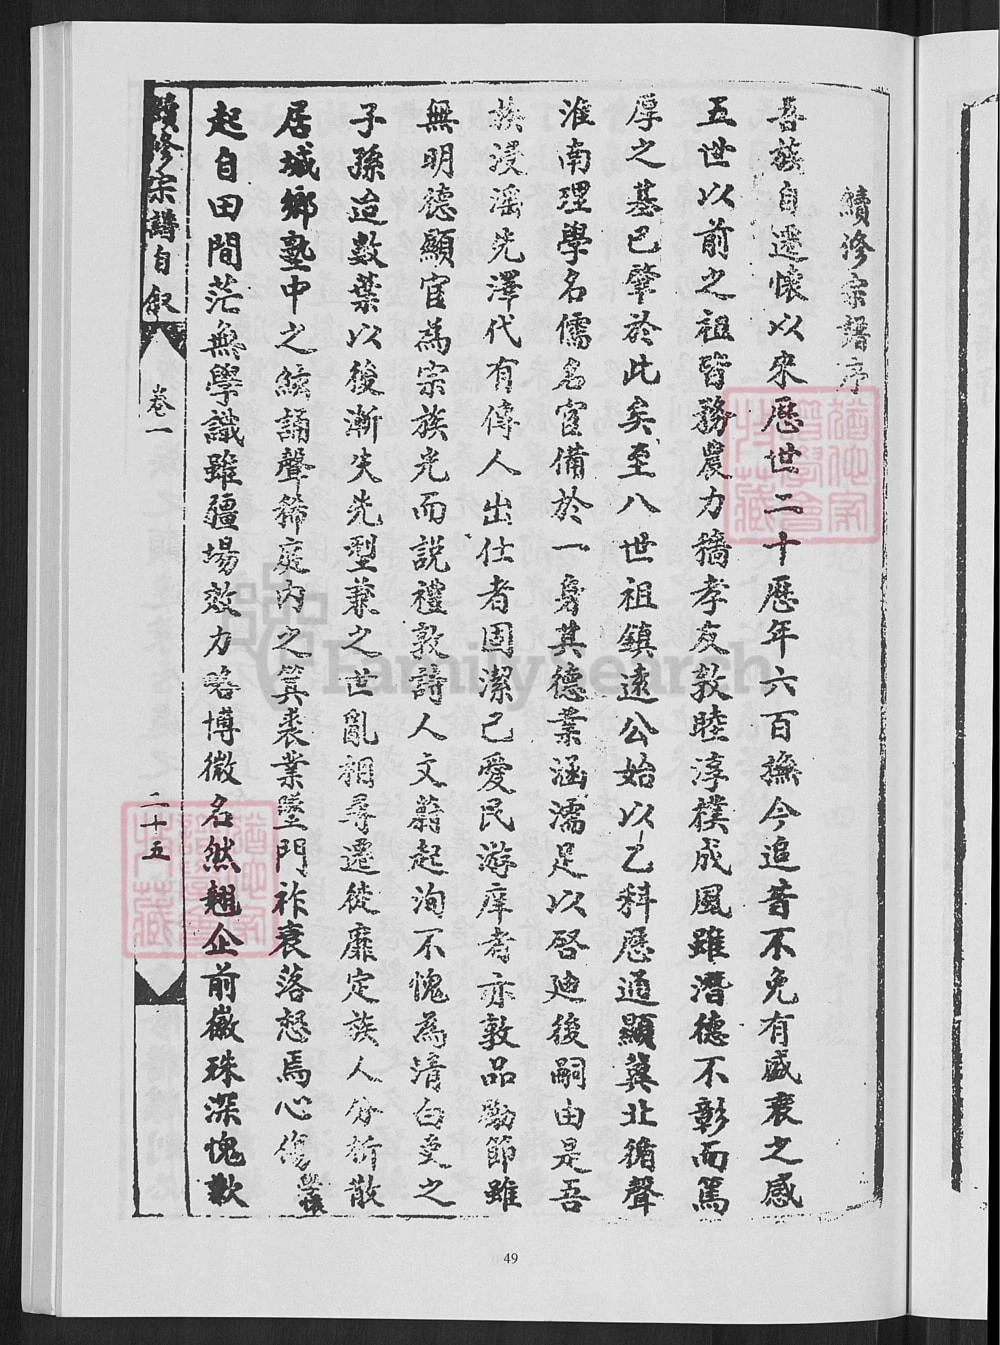 續修宗譜序
吾族自遷懷以來歷世二十歷年六百撫今追昔不免有盛衰之感
五世以前之祖皆務農力穡孝友敦睦淳樸成風雖潛德不彰而篤
厚之基已肇於此矣至八世祖鎮遠公始以乙科歷通顯冀北循聲
淮南理學名儒名宦備於一身其德業涵濡足以啓廸後嗣由是吾
族浸滛先澤代有傳人出仕者固潔己愛民游庠者亦敦品勵節雖
無明德顯宦為宗族光而説禮敦詩人文蔚起洵不愧為清白吏之
子孫迨數葉以後漸失先型兼之世亂相尋遷徙靡定族人分析散
居城鄉塾中之絃誦聲稀庭內之箕裘業墜門祚衰落惄焉心傷
起自田間茫無學識雖疆場效力略博微名然翹企前徽殊深愧歉
續修宗譜自叙 卷一 二十五
猶他家譜學會特藏
猶他家譜學會特藏
FamilySearch
49